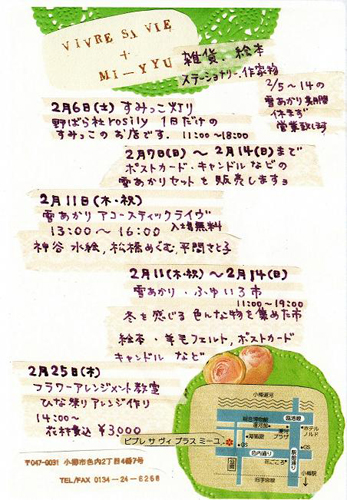 VIVRE SA VIE
+
MI-YYU
雑貨、絵本
ステーショナリー、作家物
2/5〜14の
雪あかり期間
休まず
営業致します
2月6日(土) すみっこ灯り
野ばら社rosily 1日だけの
すみっこのお店です。 11:00〜18:00
2月7日(日) 〜 2月14日(日)まで
ポストカード・キャンドルなどの
雪あかりセットを販売します
2月11日(木・祝)
雪あかり アコースティックライヴ
13:00 〜 16:00 入場無料
神谷 水絵, 松橋めぐむ, 平間さと子
2月11(木・祝) 〜 2月14(日)
雪あかり・ふゆいろ市
11:00〜19:00
冬を感じる色んな物を集めた市
絵本・羊毛フェルト, ポストカード
キャンドル など
2月25日(木)
フラワーアレンジメント教室
ひな祭りアレンジ作り
14:00〜
花材費込 ¥3000
ビブレ サ ヴィ プラス ミーユ
小樽運河
臨港線
色内通り
小樽駅
〒047-0031 小樽市色内2丁目4番7号
TEL/FAX 0134-24-6268